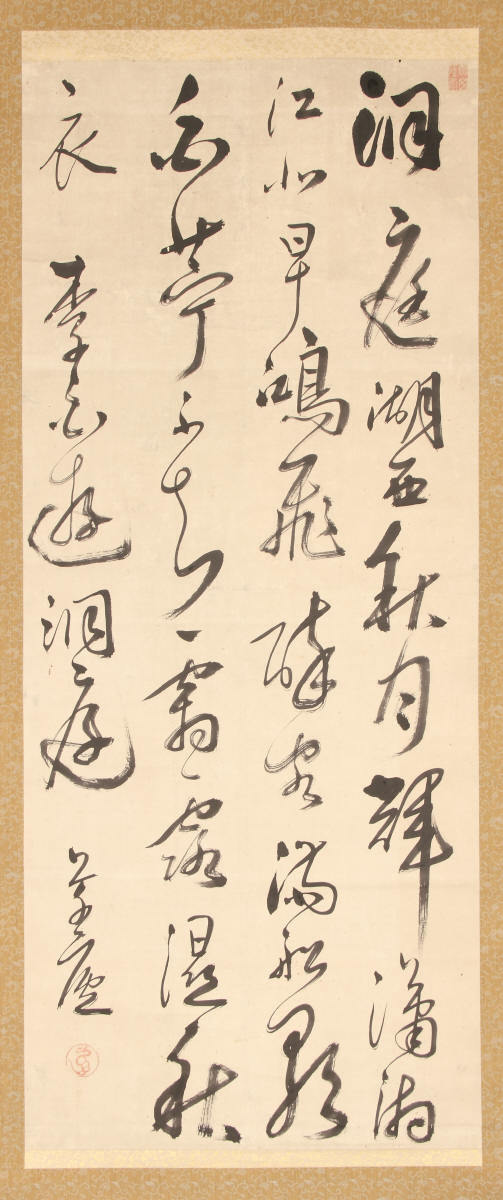 洞庭湖西秋月輝瀟湘
江北早鴻飛醉客滿船歌
白苧不知霜露濕秋
衣 李白遊洞庭 草廬